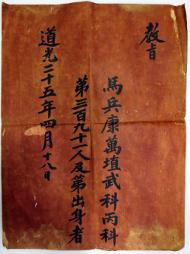 教旨
馬兵康萬埴武科丙科
第三百九十一人及第出身者
道光二十五年四月十八日